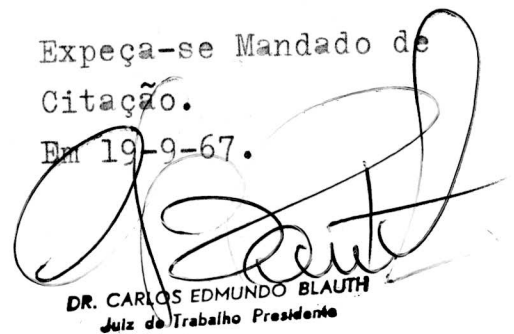 Expeça-se Mandado de
Citação.
Em 19-9-67.
DR. CARLOS EDMUNDO BLAUTH
Juiz do Trabalho Presidente